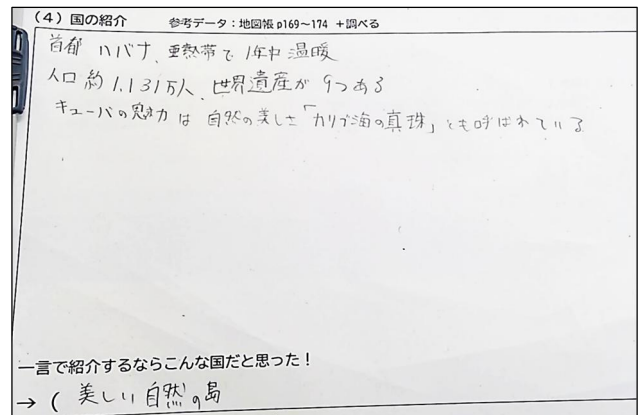 （４）国の紹介 参考データ：地図帳 p169～174 ＋調べる
首都 ハバナ、亜熱帯で 1年中 温暖
人口 約 1.131万人、世界遺産が 9つある
キューバの魅力 は 自然の美しさ「カリブ海の真珠」とも呼ばれている
一言で紹介するならこんな国だと思った！
→（ 美しい 自然の島